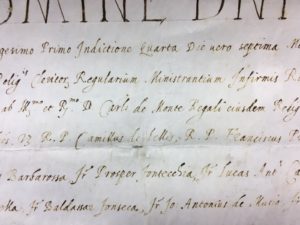 OMINE DNI
gesimo Primo Indictione Quarta Die vero septima
Relig.s Clericor. Regularium Ministrantium Infirmis
ab Ill.mo et R.mo D. Carlo de Monte Regali eiusdem Relig
R. P. Camillus de Lellis, R. P. Franciscus
Barbarossa Fr. Prosper Fontecchia, Fr. Lucas Ant.s
Fr. Baldassar Fonseca, Fr. Jo. Antonius de Mutio